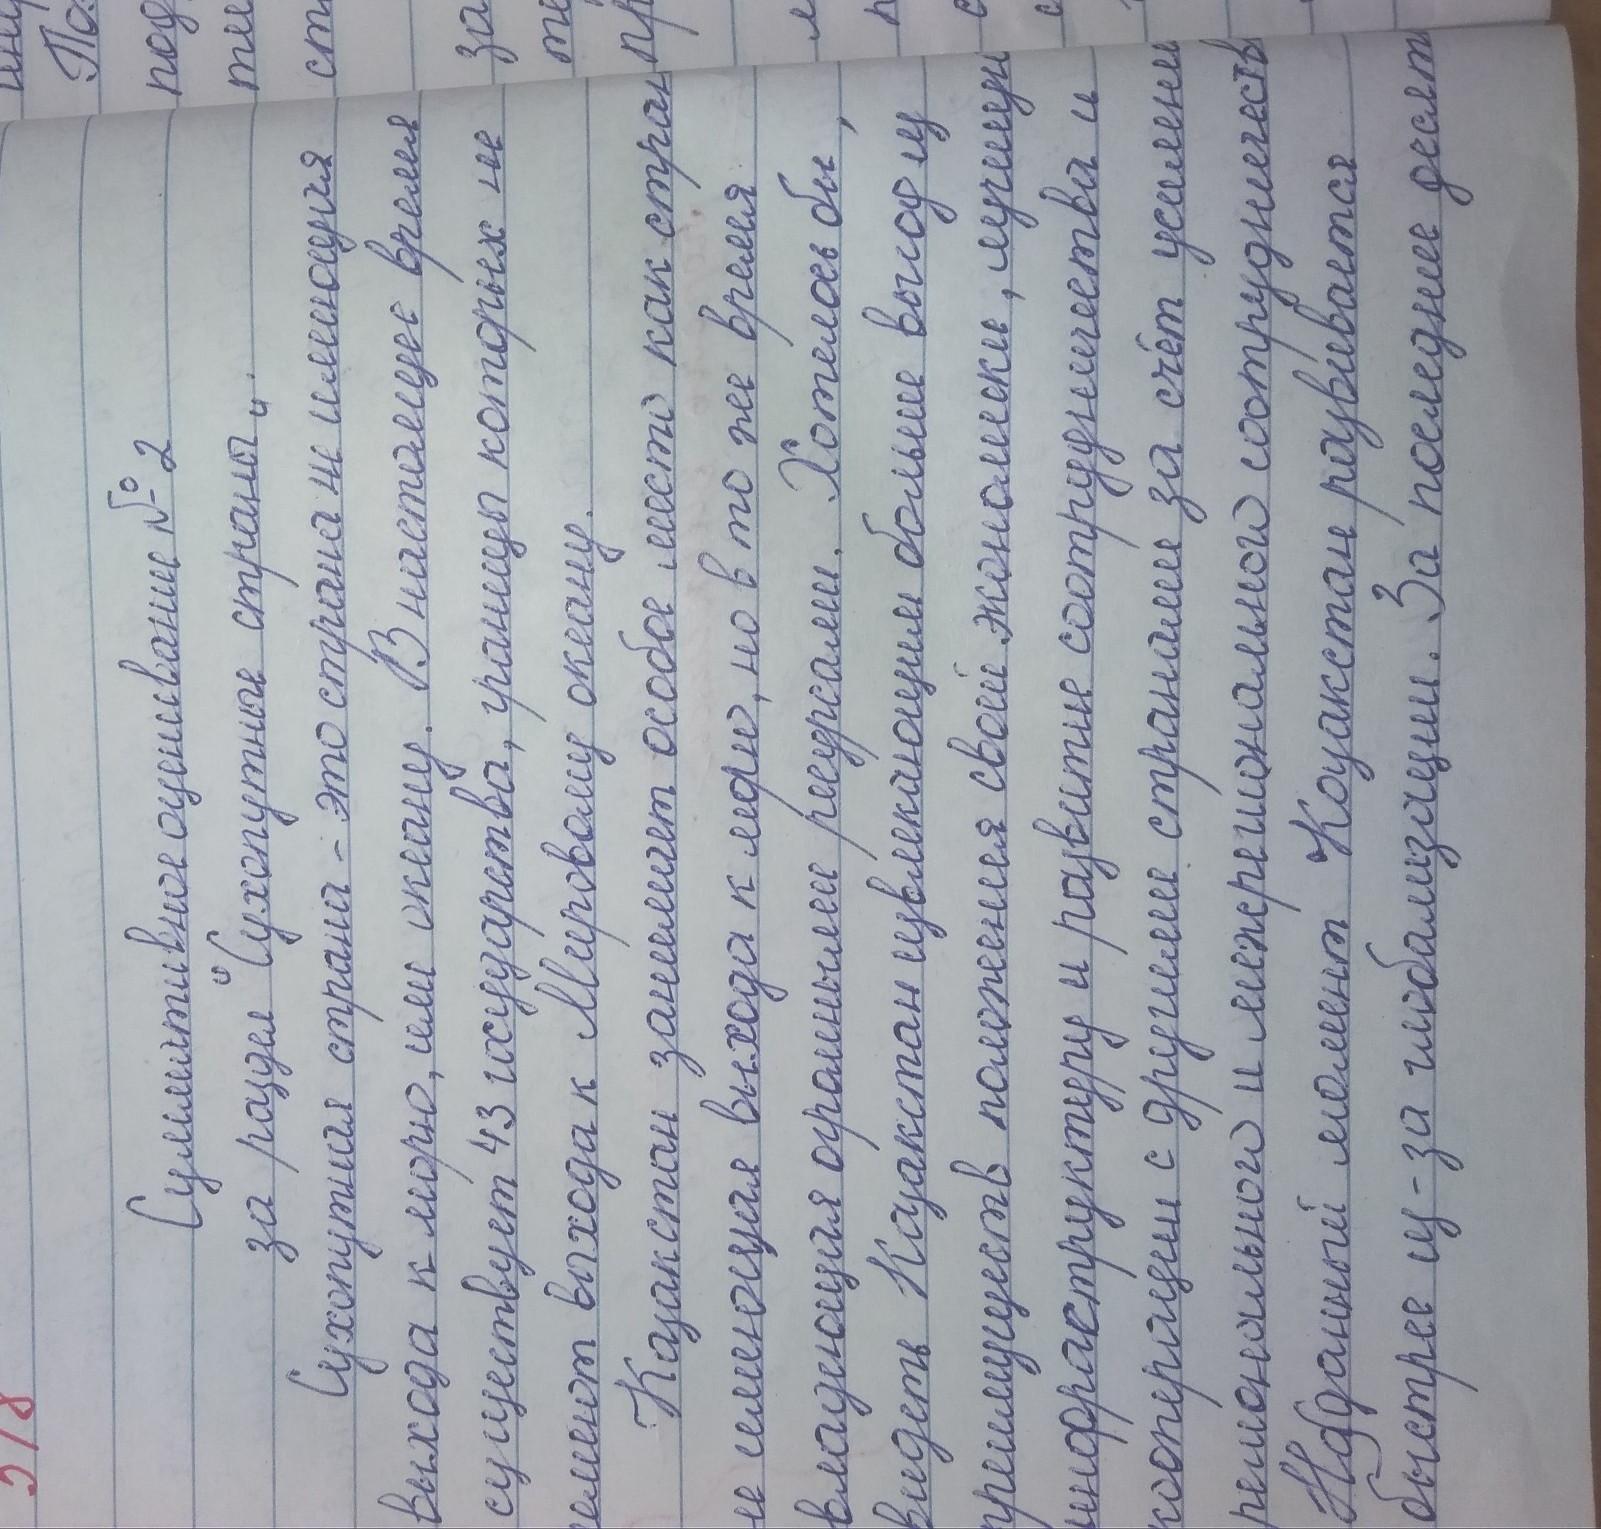 Суммативное оценивание № 2
за раздел "Сухопутные страны".
Сухопутная страна - это страна не имеющая
выхода к морю, или океану. В настоящее время
существует 43 государства, границы которых не
имеют выхода к Мировому океану.
Казахстан занимает особое место как стран
не имеющая выхода к морю, но в то же время
владеющая огромными ресурсами. Хотелось бы,
видеть Казахстан извлекающим больше выгод и
преимуществ положения своей экономики, лучшую
инфраструктуру и развитие сотрудничества и
кооперации с другими странами за счёт усиления
регионального и межрегионального сотрудничеств
На данный момент Казахстан развивается
быстрее из-за глобализации. За последние десят